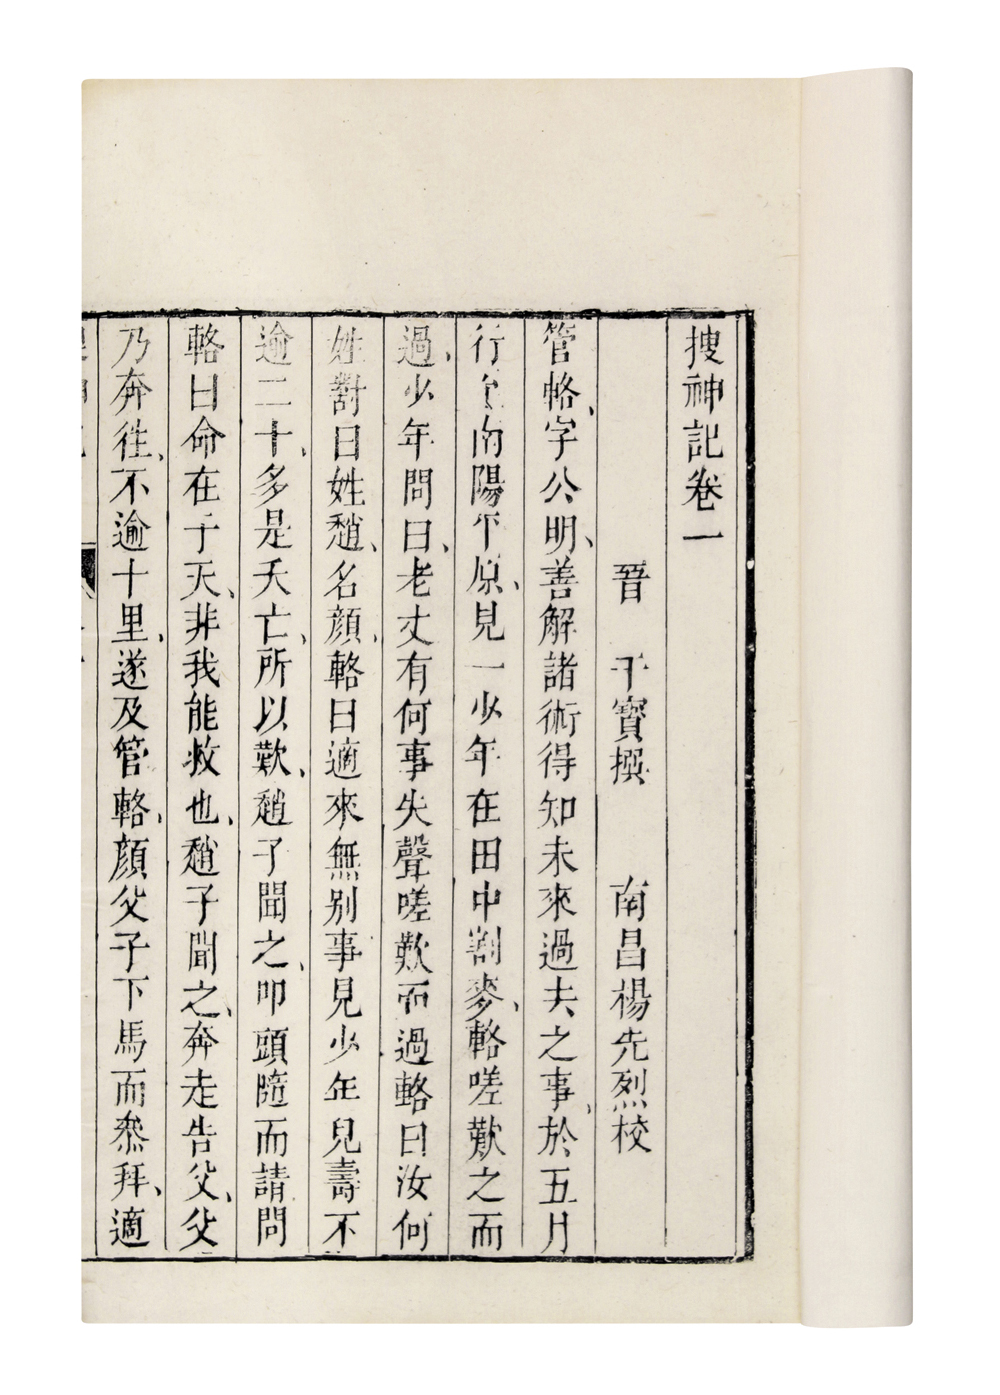 搜神記卷一
晉　干寶撰　南昌楊先烈校
管輅、字公明、善解諸術得知未來過去之事、於五月
行至南陽平原、見一少年在田中割麥、輅嗟歎之而
過、少年問曰、老丈有何事失聲嗟歎而過輅曰汝何
姓對曰姓趙、名顏、輅曰適來無別事見少年兒壽不
逾二十、多是夭亡、所以歎、趙子聞之、叩頭隨而請問
輅曰命在于天、非我能救也、趙子聞之、奔走告父、父
乃奔往、不逾十里、遂及管輅、顏父子下馬而叅拜、適